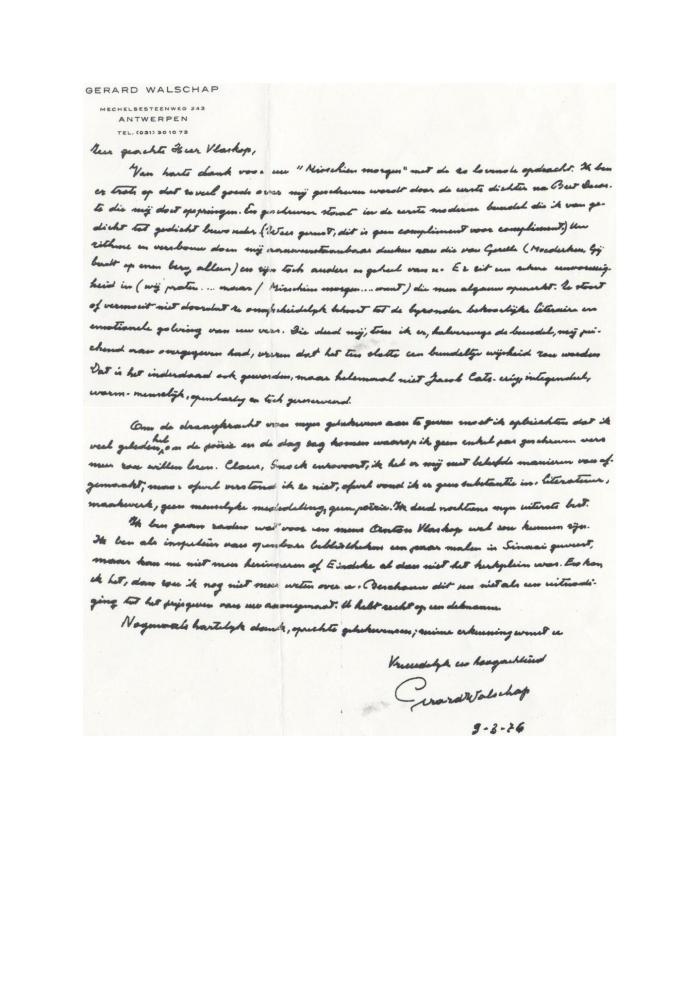 GERARD WALSCHAP
MECHELSESTEENWEG 243
ANTWERPEN
TEL. (031) 30 10 73
Zeer geachte Heer Vlaskop,
Van harte dank voor uw "Misschien morgen" met de zo lovende opdracht. Ik ben
er trots op dat zoveel goeds over mij geschreven wordt door de eerste dichter na Bert Decor-
te die mij doet opspringen. En geschreven staat in de eerste moderne bundel die ik van ge-
dicht tot gedicht bewonder. (Wees gerust, dit is geen compliment voor compliment) Uw
rithme en versbouw doen mij onweerstaanbaar denken aan die van Gezelle (Moederken, Gij
badt op enen berg alleen) en zijn toch anders en geheel van u. Er zit een zekere eenvormig-
heid in (wij praten ... maar / Misschien morgen .... want) die men algauw opmerkt. Ze stoort
of vermoeit niet doordat ze onafscheidelijk behoort tot de bijzonder bekoorlijke literaire en
emotionele golving van uw vers. Die deed mij, toen ik er, halverwege de bundel, mij
aan overgegeven had, vrezen dat het ten slotte een bundeltje wijsheid zou worden
Dat is het inderdaad ook geworden, maar helemaal niet Jacob Cats-erig, integendeel,
warm-menselijk, openhartig en toch gereserveerd.
Om de draagkracht van mijn gelukwens aan te geven moet ik opbiechten dat ik
veel geleden heb om de poëzie en de dag zag komen waarop ik geen enkel pas geschreven vers
meer zou willen lezen. Claus, Snoek enzovoort, ik heb er mij met beleefde manieren van af-
gemaakt, maar ofwel verstond ik ze niet, ofwel vond ik er geen substantie in: literatuur,
maakwerk, geen menselijke mededeling, geen poëzie. Ik deed nochtans mijn uiterste best.
Ik ben gaan raden wat voor een mens Anton Vlaskop wel zou kunnen zijn.
Ik ben als inspekteur van openbare bibliotheken een paar malen in Sinaai geweest,
maar kan me niet meer herinneren of Eindeke al dan niet het kerkplein was. En kon
ik het, dan zou ik nog niet meer weten over u. Beschouw dit nu niet als een uitnodi-
ging tot het prijsgeven van uw anonymaat. U hebt recht op een deknaam.
Nogmaals hartelijk dank, oprechte gelukwensen;
Vriendelijk en hoogachtend
Gerard Walschap
9-2-76